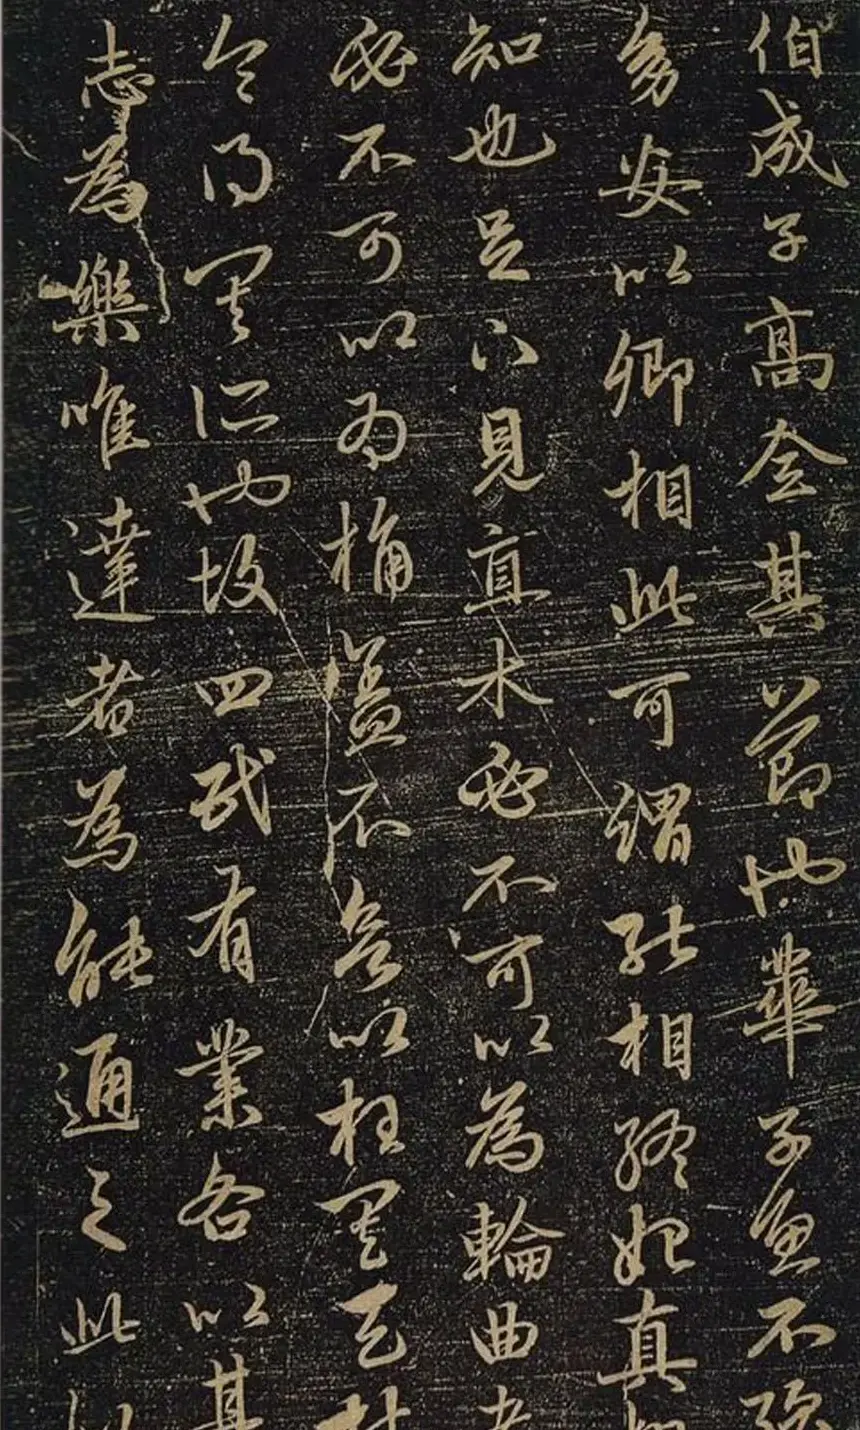 伯成子高全其節也華子魚不强
幼安以卿相此可謂能相終始真相
知也足下見直木必不可以為輪曲者
必不可以為桷蓋不欲以枉其天材
令得其所也故四民有業各以其
志為樂唯達者為能通之此